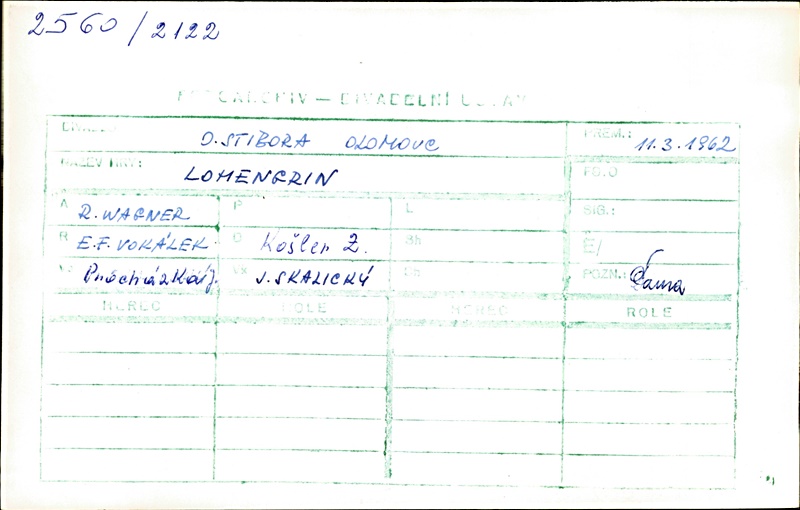 2560/2122
FOTOARCHIV — DIVADELNÍ ÚSTAV
DIVADLO O. STIBORA OLOMOUC PREM.: 11.3.1962
NÁZEV HRY: LOHENGRIN FO.O
A R. WAGNER P L SIG.:
R E.F. VOKÁLEK D Košler Z. Sh Č/
Procházka J. Vx J. SKALICKÝ POZN.:
HEREC ROLE HEREC ROLE